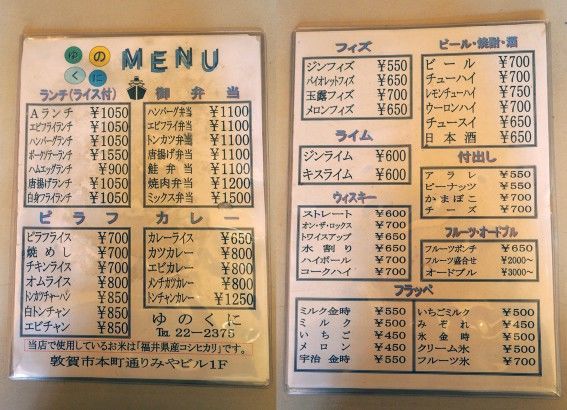 ゆの MENU
くに
ランチ(ライス付)
Aランチ ¥1050
エビフライランチ ¥1050
ハンバーグランチ ¥1050
ポークソテーランチ ¥1550
ハムエッグランチ ¥900
唐揚げランチ ¥1050
白身フライランチ ¥1050
御弁当
ハンバーグ弁当 ¥1100
エビフライ弁当 ¥1100
トンカツ弁当 ¥1100
唐揚げ弁当 ¥1100
鮭弁当 ¥1100
焼肉弁当 ¥1200
ミックス弁当 ¥1500
ピラフ
ピラフライス ¥700
焼めし ¥700
チキンライス ¥700
オムライス ¥800
トンカツチャーハン ¥850
白トンチャン ¥850
エビチャン ¥850
カレー
カレーライス ¥650
カツカレー ¥800
エビカレー ¥800
メンチカツカレー ¥800
トンチャンカレー ¥1250
ゆのくに
TEL 22-2375
当店で使用しているお米は「福井県産コシヒカリ」です。
敦賀市本町通りみやビル1F
フィズ
ジンフィズ ¥550
バイオレットフィズ ¥650
玉露フィズ ¥700
メロンフィズ ¥650
ライム
ジンライム ¥600
キスライム ¥600
ウィスキー
ストレート ¥600
オン・ザ・ロックス ¥700
トワイスアップ ¥650
水割り ¥650
ハイボール ¥700
コークハイ ¥700
ビール・焼酎・酒
ビール ¥700
チューハイ ¥700
レモンチューハイ ¥750
ウーロンハイ ¥700
チュースイ ¥650
日本酒 ¥650
付出し
アラレ ¥550
ピーナッツ ¥550
かまぼこ ¥700
チーズ ¥700
フルーツ・オードブル
フルーツポンチ ¥650
フルーツ盛合せ ¥2000~
オードブル ¥3000~
フラッペ
ミルク金時 ¥550
ミルク ¥500
いちご ¥450
メロン ¥450
宇治金時 ¥550
いちごミルク ¥500
みぞれ ¥450
氷金時 ¥500
クリーム氷 ¥500
フルーツ氷 ¥700